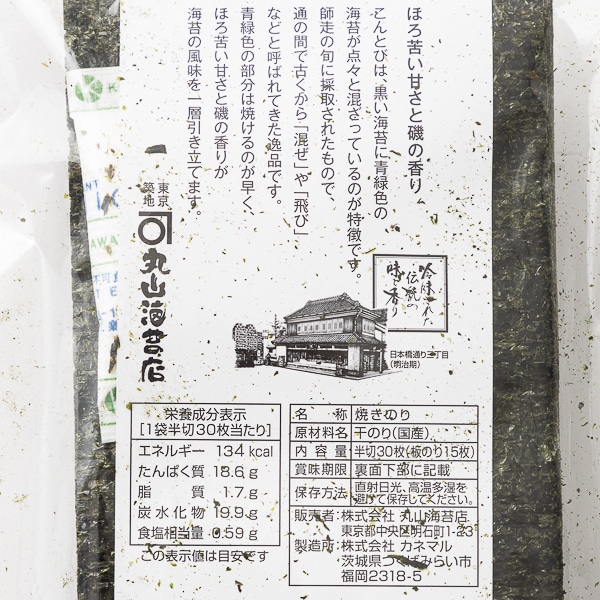 ほろ苦い甘さと磯の香り
こんとびは、黒い海苔に青緑色の
海苔が点々と混ざっているのが特徴です。
師走の旬に採取されたもので、
通の間で古くから「混ぜ」や「飛び」
などと呼ばれてきた逸品です。
青緑色の部分は焼けるのが早く、
ほろ苦い甘さと磯の香りが
海苔の風味を一層引き立てます。
吟味された
伝統の
味と香り
東京
築地
丸山海苔店
日本橋通り三丁目
(明治期)
栄養成分表示
[1袋半切30枚当たり]
エネルギー 134 kcal
たんぱく質 18.6 g
脂質 1.7 g
炭水化物 19.9 g
食塩相当量 0.59 g
この表示値は目安です
名称 焼きのり
原材料名 干のり(国産)
内容量 半切30枚(板のり15枚)
賞味期限 裏面下部に記載
保存方法 直射日光、高温多湿を
避けて保存してください。
販売者: 株式会社 丸山海苔店
東京都中央区明石町1-23
製造所: 株式会社 カネマル
茨城県つくばみらい市
福岡2318-5